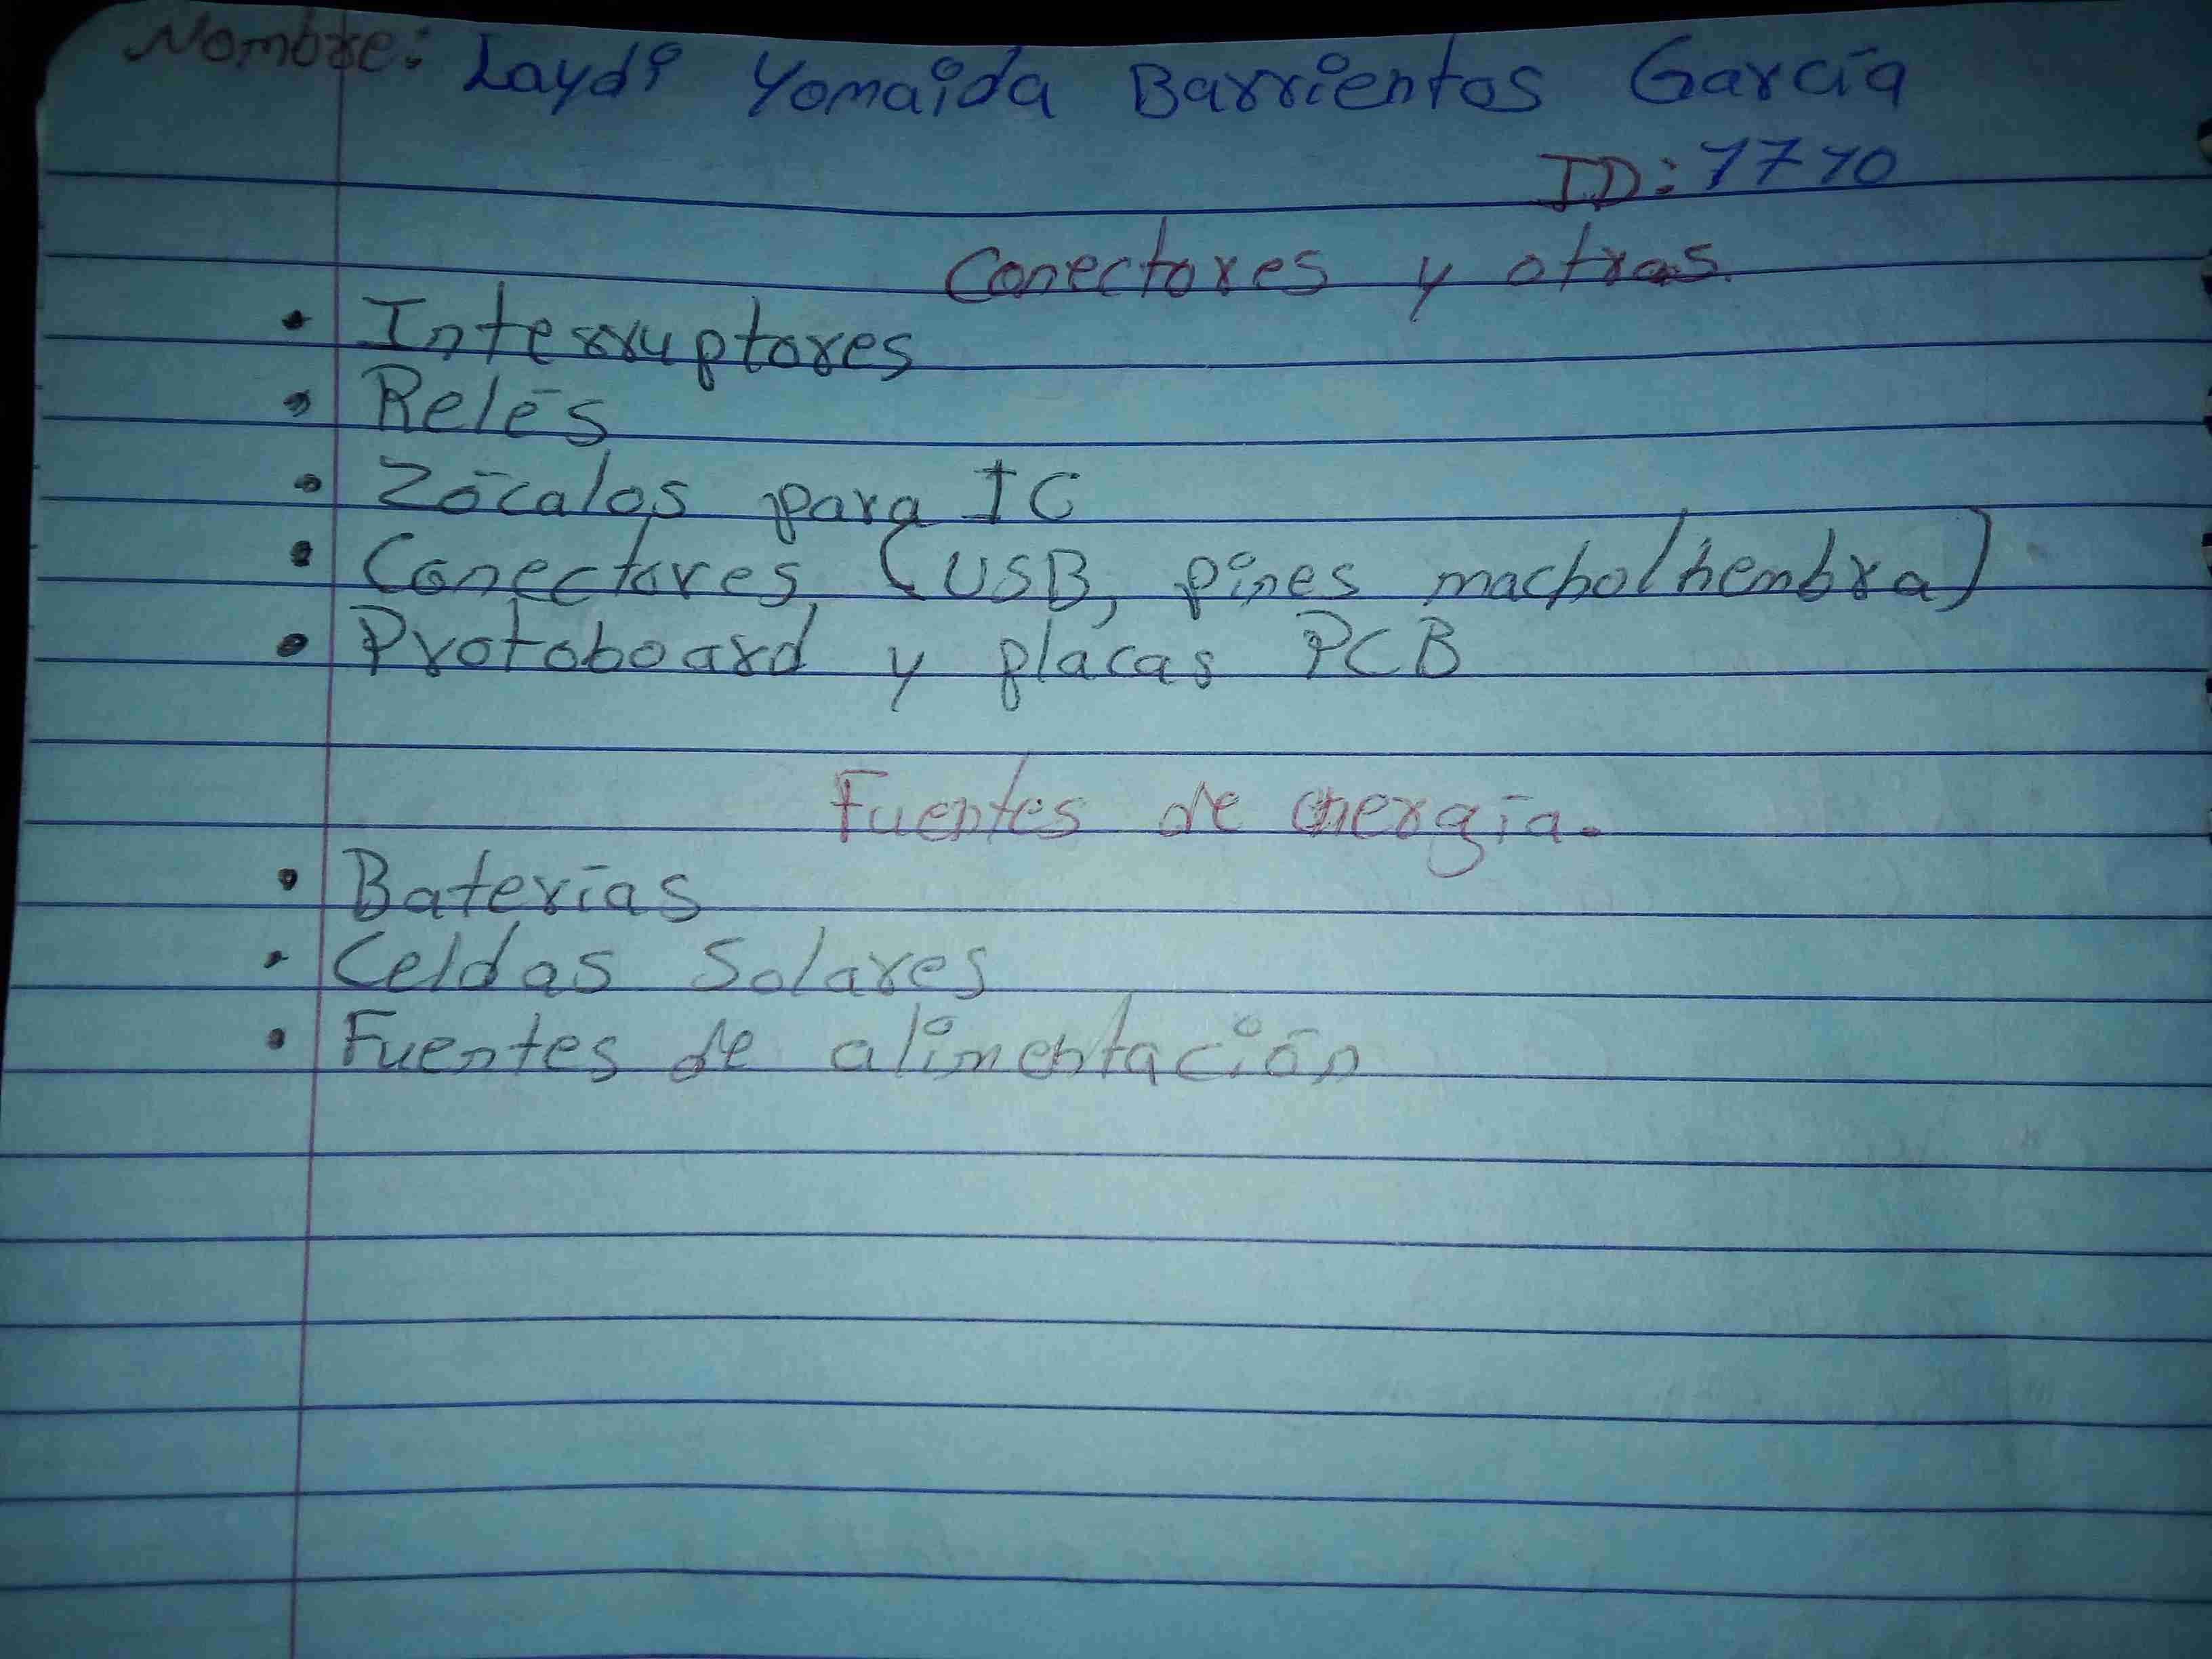 Nombre: Laydi Yomaida Barrientos García
ID: 7770
Conectores y otras.
• Interruptores
• Relés
• Zócalos para IC
• Conectores (USB, pines macho/hembra)
• Protoboard y placas PCB
Fuentes de energía.
• Baterías
• Celdas Solares
• Fuentes de alimentación